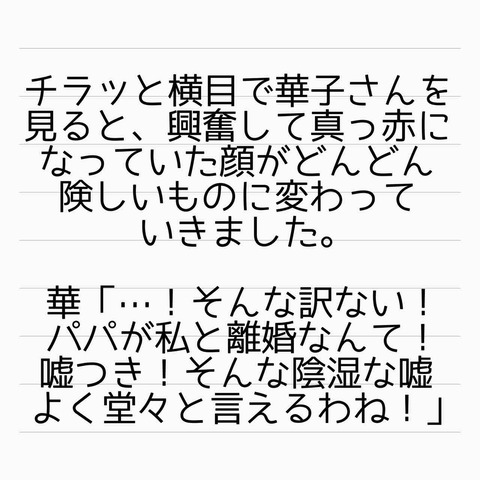 チラッと横目で華子さんを
見ると、興奮して真っ赤に
なっていた顔がどんどん
険しいものに変わって
いきました。
華「…！そんな訳ない！
パパが私と離婚なんて！
嘘つき！そんな陰湿な嘘
よく堂々と言えるわね！」